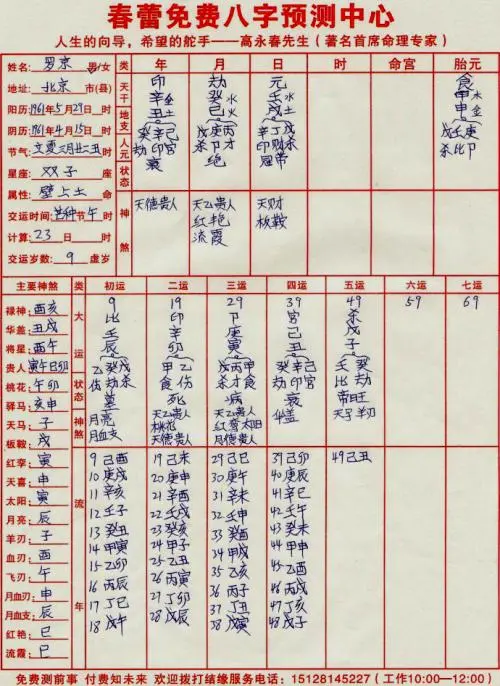 春蕾免费八字预测中心
人生的向导，希望的舵手——高永春先生（著名首席命理专家）
姓名：罗京 男/女 类 年 月 日 时 命宫 胎元
地址：北京 市(县) 天干 印 劫 元 食
阳历：1961年5月29日 时 辛金 癸水 壬水 甲木
阴历：1961年4月15日 时 地支 丑土 巳火 戌土 申金
节气：立夏三月廿二丑 时 人元 癸辛己 戊庚丙 辛丁戊 戊壬庚
星座：双子 座 劫印官 杀卩才 印财杀 杀比卩
属性：壁上土 命 状态 衰 绝 冠带
交运时间：芒种节午 时 神煞 天德贵人 天乙贵人 天财
计算：23 日 时 红艳 板鞍
交运岁数：9 虚岁 流霞
主要神煞 类 初运 二运 三运 四运 五运 六运 七运
禄神：酉亥 大运 9 19 29 39 49 59 69
华盖：丑戌 比 印 卩 官 杀
将星：酉午 壬 辛 庚 己 戊
贵人：寅午巳卯 辰 卯 寅 丑 子
桃花：午卯 乙癸戊 甲乙 戊丙甲 癸辛己 壬癸
驿马：亥申 状态 伤劫杀 食伤 杀才食 劫印官 比劫
天马：子 墓 死 病 衰 帝旺
板鞍：戌 神煞 月亮 天乙贵人 天乙贵人 华盖 羊刃
红孪：寅 月血支 桃花 红鸾太阳
天喜：申 天德贵人 月德贵人
太阳：寅 流年 9己酉 19己未 29己巳 39己卯 49己丑
月亮：辰 10庚戌 20庚申 30庚午 40庚辰
羊刃：子 11辛亥 21辛酉 31辛未 41辛巳
血刃：酉 12壬子 22壬戌 32壬申 42壬午
飞刃：午 13癸丑 23癸亥 33癸酉 43癸未
月血刃：申 14甲寅 24甲子 34甲戌 44甲申
月血支：辰 15乙卯 25乙丑 35乙亥 45乙酉
红艳：巳 16丙辰 26丙寅 36丙子 46丙戌
流霞：巳 17丁巳 27丁卯 37丁丑 47丁亥
18戊午 28戊辰 38戊寅 48戊子
免费测前事 付费知未来 欢迎拨打结缘服务电话：15128145227（工作10:00—12:00）